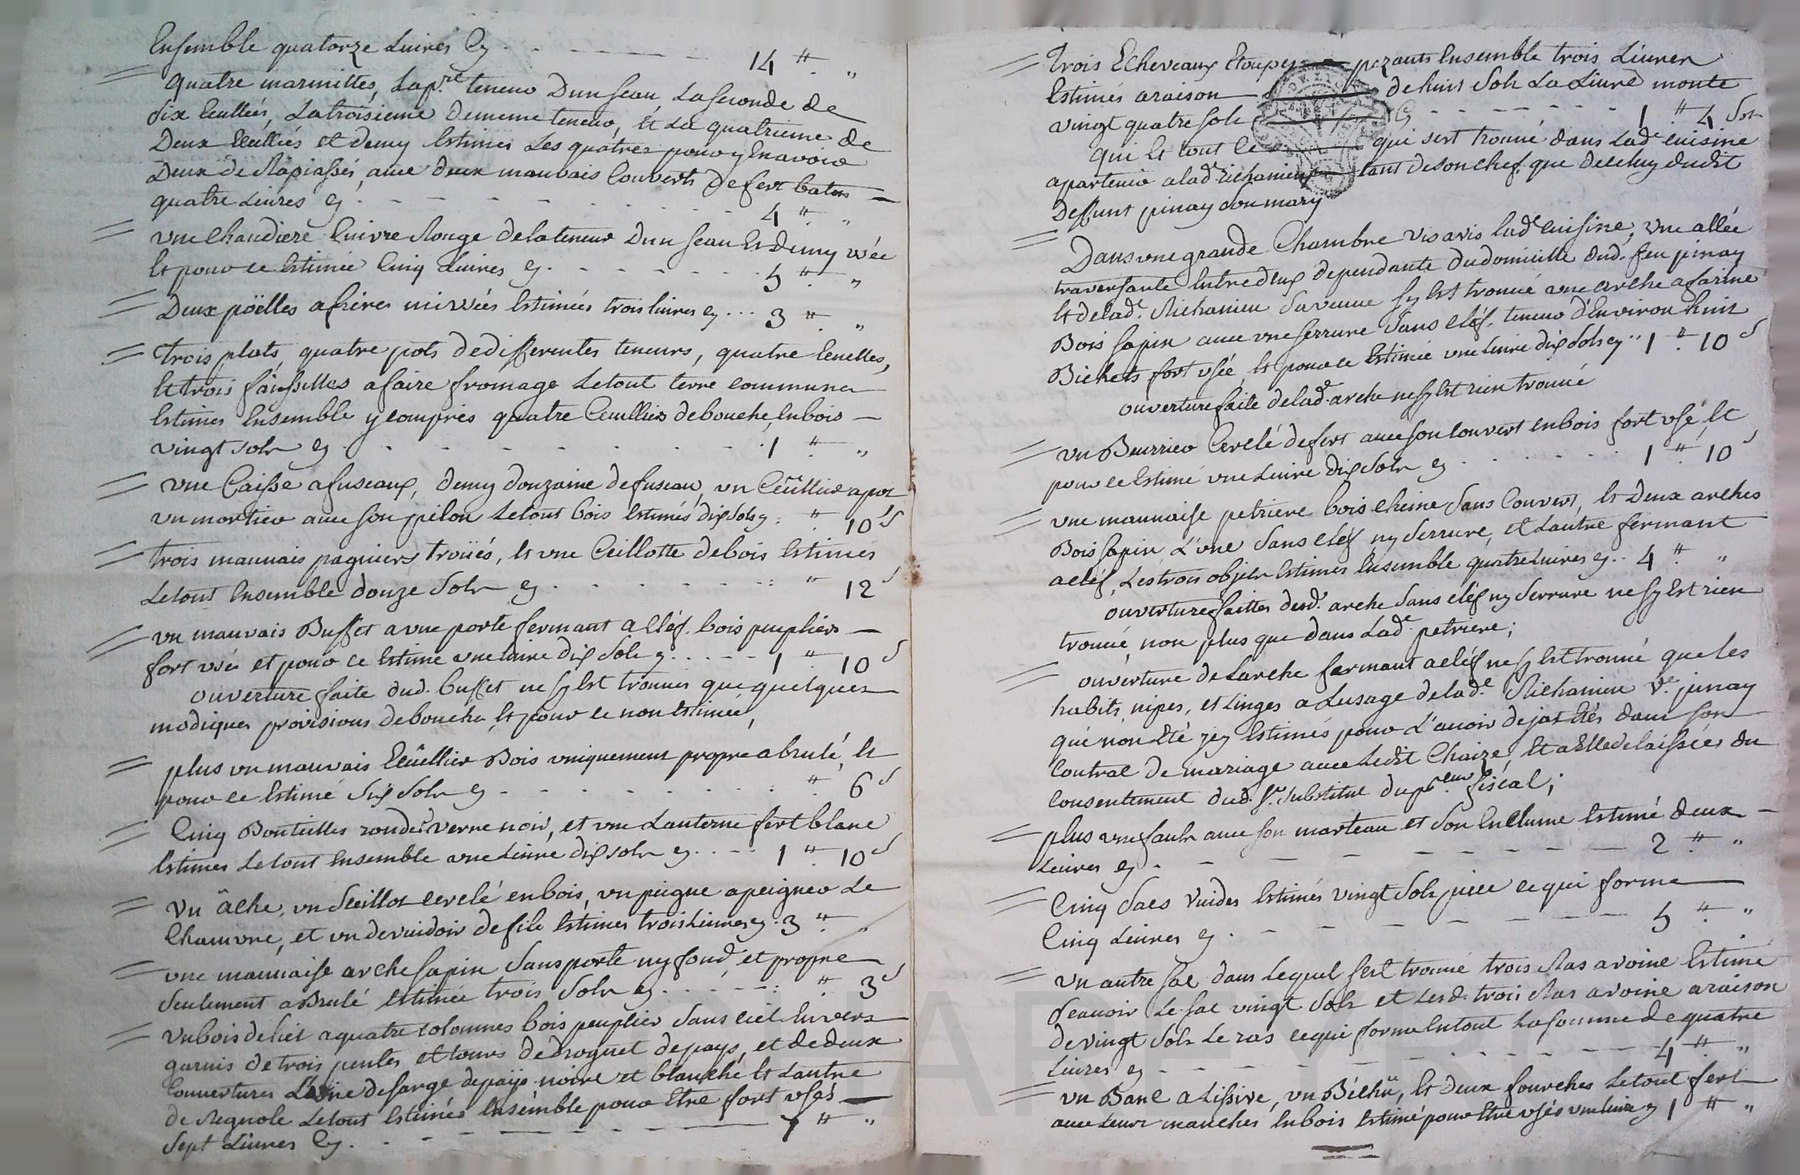 Ensemble quatorze Livres Cy 14 ₶ "
quatre marmittes, La p.re teneur D'un seau, La seconde de
six Ceullées, La troisieme de meme teneur, et La quatrieme de
Deux Ceulliés et demy Estimés Les quatres pour y En avoir
Deux De Rapiassés, avec deux mauvais Couverts de fert batus
quatre Livres cy 4 ₶ "
une Chaudiere Cuivre Rouge de la teneur D'un seau Et Demy usée
Et pour ce Estimée Cinq Livres cy 5 ₶ "
Deux poëlles a frires usées Estimées trois livres cy 3 ₶ "
trois plats, quatre pots de differentes teneurs, quatre
Et trois faisselles a faire fromage Le tout terre commune
Estimés Ensemble y compris quatre Ceulliers de bouche en bois
vingt sols cy 1 ₶ "
une Caisse a fuseaux, demy douzaine de fuseau, un Ceüllier a pot
un mortier avec son pilon Le tout bois Estimés dix sols cy ₶ 10 s
trois mauvais pagniers troüés, Et une Ceillotte de bois Estimés
Le tout Ensemble douze Sols cy ₶ 12 s
un mauvais Buffet a une porte fermant a Cléf bois peuplier
fort usés et pour ce Estimé une livre dix Sols cy 1 ₶ 10 s
ouverture faite dud. buffet ne s'y Est trouvés que quelques
modiques provisions de bouche, Et pour ce non Estimée,
plus un mauvais Ceüillier Bois uniquement propre a brulé, Et
pour ce Estimé Six Sols cy ₶ 6 s
Cinq Bouteilles rondes verre noir, et une Lanterne fert blanc
Estimés Le tout Ensemble une Livre dix sols cy 1 ₶ 10 s
un ache, un Seillot cerclé en bois, un peigne a peigner Le
Chanvre, et un devuidoir de file Estimés trois Livres cy 3 ₶ "
une mauvaise arche sapin, Sans porte ny fond, et propre
Seulement a Brulé Estimée trois Sols cy ₶ 3 s
un bois de liet a quatre colomnes bois peuplier Sans ciel Envers
garnis de trois pentes et tours de droguet de pays, et de deux
Couvertures L'une de sarge de païs noire et blanche Et L'autre
de Regnole Le tout Estimés Ensemble pour Etre fort usés
Sept Livres Cy 7 ₶ "
Trois Echeveaux Etoupes pezants Ensemble trois Livres
Estimés a raison de huit Sols La Livre monte
vingt quatre sols Cy 1 ₶ 4 Sols
qui Et tout ce qui sest trouvé dans Lad.e cuisine
apartenir a lad.e Richamieu tant de son chef que de celuy dudit
Deffunt pinay son mary
Dans une grande Chambre vis avis lad.e cuisine, une allée
traversante Entre deux dependante du domicille dud. feu pinay
Et de lad.e Richamieu Sa veuve s'y Est trouvé une arche a farine
Bois sapin avec une serrure Sans cléf, teneur d'Environ huit
Bichets fort usée, Et pour ce Estimée une livre dix Sols cy 1 ₶ 10 s
ouverture faite de lad. arche ne s'y Est rien trouvé
un Beurrier Cerclé de fert avec son Couvert en bois fort usé, Et
pour ce Estimé une Livre dix Sols cy 1 ₶ 10 s
une mauvaise petriere bois cheine Sans Couvert, Et Deux arches
Bois sapin, L'une Sans cléf ny Serrure, et L'autre fermant
a cléf, Les trois objets Estimés Ensemble quatre Livres cy 4 ₶ "
ouvertures faittes desd. arche Sans cléf ny Serrure ne s'y Est rien
trouvé, non plus que dans Lad.e petriere;
ouverture de L'arche fermant a cléf ne s'y Est trouvé que les
habits, nipes, et Linges a L'usage de lad.e Richamieu V.e pinay
qui n'on Eté Estimés pour L'avoir deja Etés dans son
Contrat de mariage avec Ledit Chaize, Et a Elle delaissées du
Consentement dud. S.r Substitut du p.eur fiscal;
plus une faulx avec son marteau et Son Enclume Estimé deux
Livres cy 2 ₶ "
Cinq Sacs vuides Estimés vingt Sols piece ce qui forme
Cinq Livres cy 5 ₶ "
un autre sac dans Lequel s'est trouvé trois Ras avoine Estimé
scavoir Le sac vingt Sols et Lesd. trois Ras avoine a raison
de vingt Sols Le ras ce qui forme En tout La somme de quatre
Livres cy 4 ₶ "
un Banc a Lissive, un Béchü, Et deux fourches Le tout fert
avec Leurs manches En bois Estimé pour Etre usés une livre cy 1 ₶ "